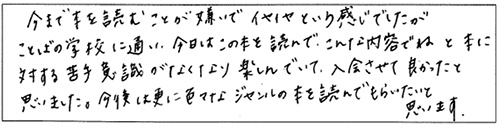 今まで本を読むことが嫌いでイヤイヤという感じでしたが
ことばの学校に通い、今日はこの本を読んで、こんな内容でねと本に
対する苦手意識がなくなり楽しんでいて、入会させて良かったと
思いました。今後は更に色々なジャンルの本を読んでもらいたいと
思います。